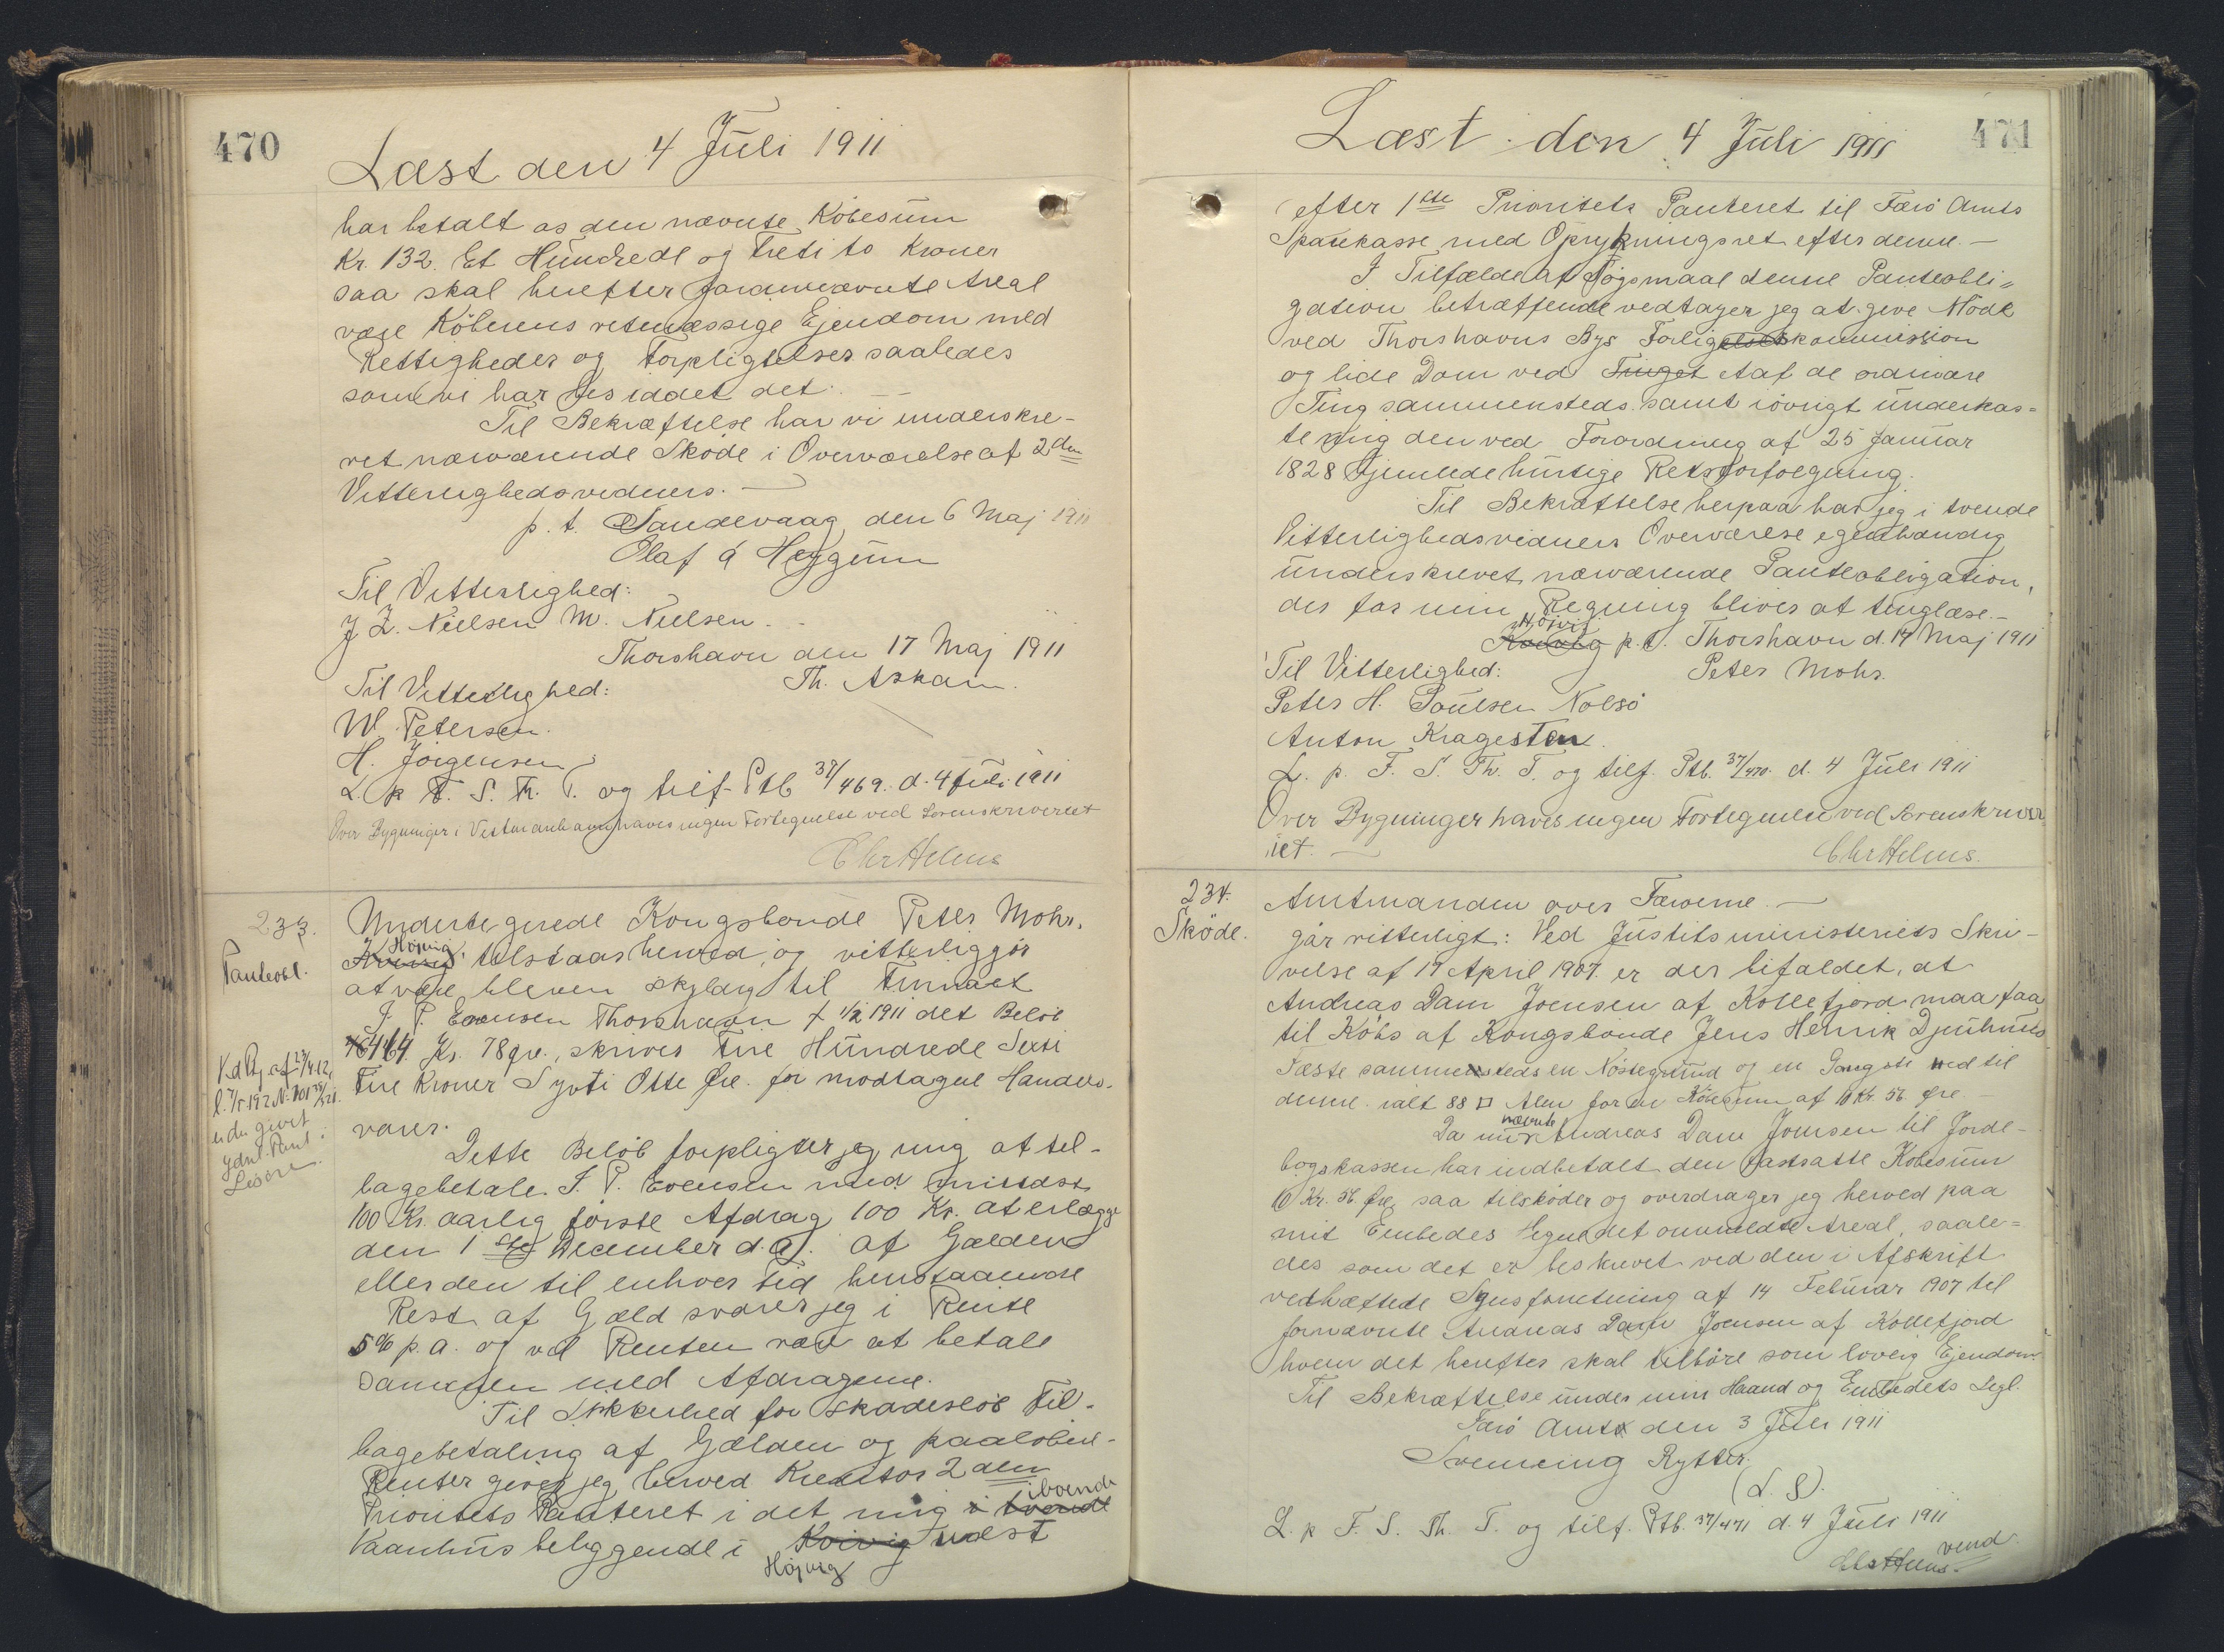 470
Læst den 4 Juli 1911
har betalt os den nævnteKöbesum
Kr. 132. Et Hundrede og Treti to Kroner
saa skal herefter forannævnte Areal
være Köberens retmæssige Ejendom med
Rettigheder og Forpligtelser saaledes
som vi har besiddet det. —
Til Bekræftelse har vi underskre-
vet nærværende Sköde i Overværelse af 2den
Vitterlighedsvidners. —
p. t. Sandevaag, den 6 Maj 1911
Olaf á Heygum
Til Vitterlighed:
J Z. Nielsen M. Nielsen.
Thorshavn den 17 Maj 1911
Til Vitterlighed: Th. Askam.
W. Petersen.
H. Jörgensen
L. p F. S. Th. T. og tilf. Ptb 37/469. d. 4 Juli 1911
Over Bygninger i Vestmanhavn haves ingen Fortegnelse ved Sorenskriveriet
Chr Helms
233.
Panteobl.
Undertegnede Kongsbonde Peter Mohr,
Höjvig
tilstaar herved, og vitterliggör
at være bleven skyldig til Firmaet
J. P. Evensen Thorshavn + 1/2 1911 det Beløb
464 Kr. 78 Øre, skrives Fire Hundrede Sexti
Fire Kroner Syvti Otte Øre. for modtagne Handels-
varer.
Dette Beløb forpligter jeg mig at til-
bagebetale J. P. Evensen med mindst
100 Kr. aarlig förste Afdrag 100 Kr. at erlægge
den 1ste December d. A. af Gælden
eller den til enhver Tid henstaaende
Rest af Gæld svarer jeg i Rente
5% p. a. og vil Renten være at betale
sammen med Afdragene.
Til Sikkerhed for skadeslös Til-
bagebetaling af Gælden og paalöbne
Renter giver jeg herved Kreditor 2den
iboende
Prioritets Panteret i det mig i tvende
Vaanhus beliggende i Koivig næst
Höjvig
471
Læst den 4 Juli 1911
efter 1ste Prioritets Panteret til Færö Amts
Sparekasse med Oprykningsret efter denne. —
I Tilfælde af Søgsmaal denne Panteobli=
gation betræffende vedtager jeg at give Möde
ved Thorshavns Bys Forligelseskommission
og lide Dom ved Tinget af de ordinære
Ting sammensteds samt iövrigt underkas=
te mig den ved Forordning af 25 Januar
1828 hjemlede hurtige Retsforfølgning.
Til Bekræftelse herpaa har jeg i tvende
Vitterlighedsvidners Overværelse egenhændig
underskrevet nærværende Panteobligation,
der for min Regning bliver at tinglæse. —
Höjvig
p. t. Thorshavn d. 17 Maj 1911
Til Vitterlighed: Peter Mohr.
Peter H. Poulsen Nolsö
Anton Kragesteen.
L. p. F. S. Th. T. og tilf. Ptb. 37/470. d. 4 Juli 1911
Over Bygninger haves ingen Fortegnelse ved Sorenskriver
iet. — Chr Helms.
234.
Sköde.
Amtmanden over Færøerne. —
gör vitterligt: Ved Justitsministeriets Skri-
velse af 19 April 1907 er der bifaldet, at
Andreas Dam Joensen af Kollefjord maa faa
til Köbs af Kongsbonde Jens Henrik Djurhuus
Fæste sammensteds en Nöstegrund og en Gangsti ned til
denne ialt 88 □ Alen for en Köbesum af 10 Kr. 56 Øre
nævnte
Da Andreas Dam Joensen til Jorde-
bogskassen har indbetalt den fastsatte Köbesum
10 Kr. 56 Øre, saa tilsköder og overdrager jeg herved paa
mit Embedes Vegne det ommeldte Areal, saale=
des som det er beskrevet ved den i Afskrift
vedhæftede Synsforretning af 14 Februar 1907 til
fornævnte Andreas Dam Joensen af Kollefjord
hvem det herefter skal tilhöre som lovlig Ejendom.
Til Bekræftelse under min Haand og Embedets Segl.
Færö Amt den 3 Juli 1911
Svenning Rytter.
(L. S.)
L. p F. S. Th. T. og tilf. Ptb. 37/471 d. 4 Juli 1911
vend
Chr Helms.